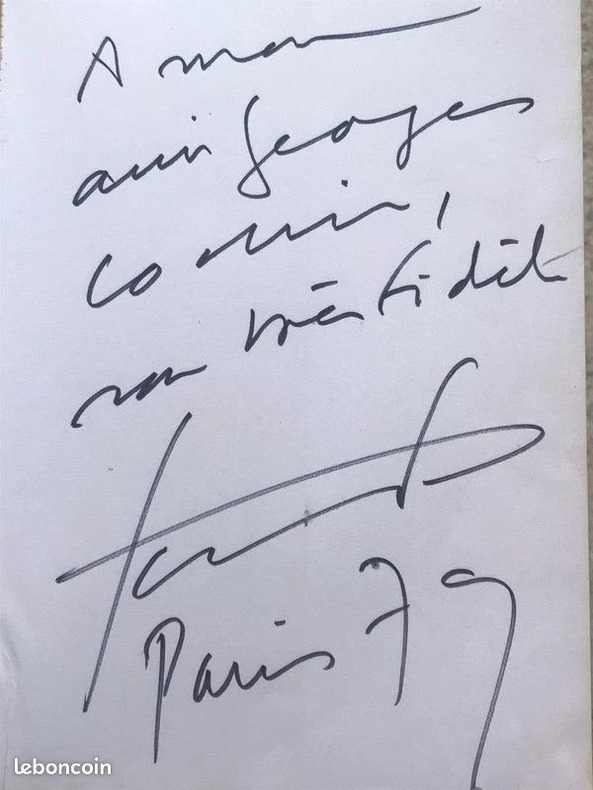 A mon
ami Georges
son très fidèle
Paris 79
leboncoin